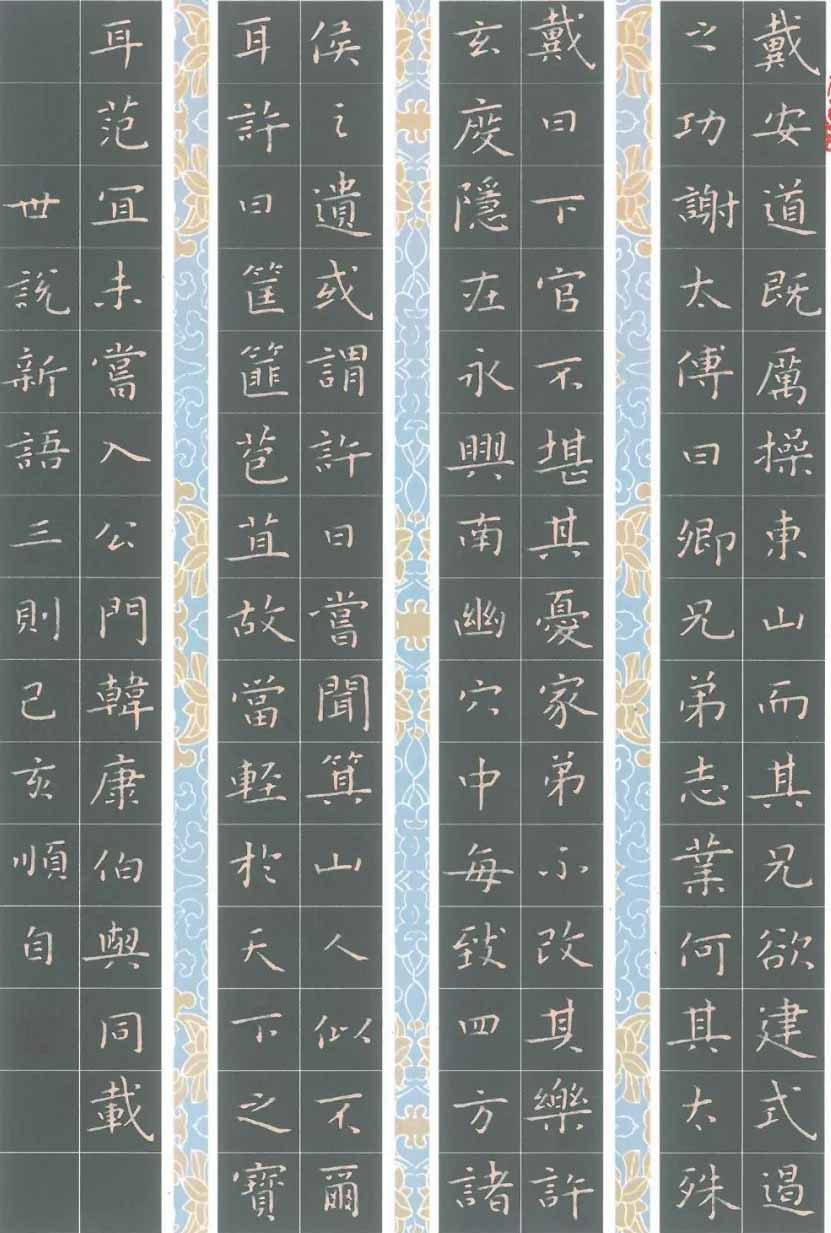 戴安道既厲操東山而其兄欲建式遏
之功謝太傅曰卿兄弟志業何其太殊
戴曰下官不堪其憂家弟不改其樂許
玄度隱在永興南幽穴中每致四方諸
侯之遺或謂許曰嘗聞箕山人似不爾
耳許曰筐篚苞苴故當輕於天下之寶
耳范宣未嘗入公門韓康伯與同載
世說新語三則己亥順自